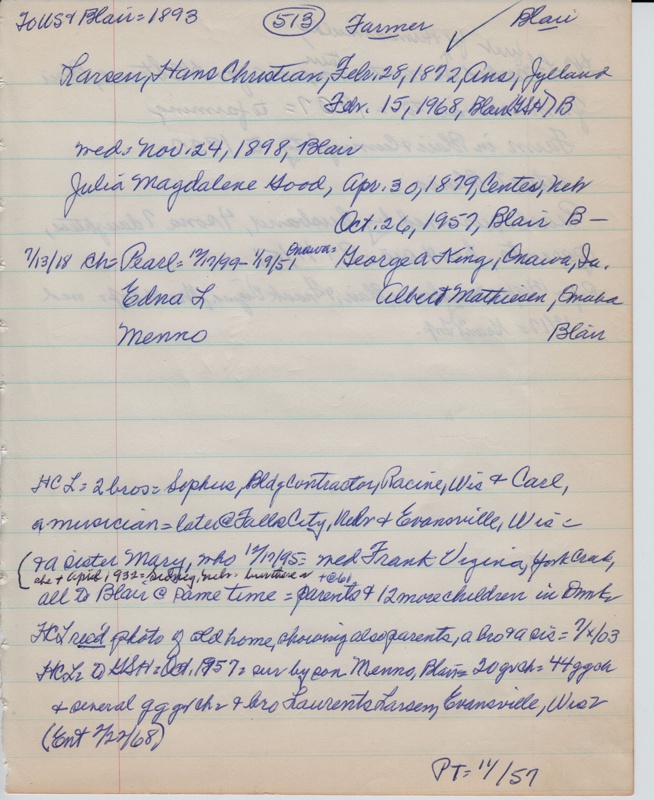 To US & Blair = 1893 513 Farmer Blair
Larsen, Hans Christian, Febr. 28, 1872, Ans, Jylland
Febr. 15, 1968, Blair (GSH) B
med: Nov. 24, 1898, Blair
Julia Magdalene Good, Apr. 30, 1879, Center, Nebr
Oct. 26, 1957, Blair B -
7/13/18 ch = Pearl = 12/17/99 - 1/19/51 Onawa = George A King, Onawa, Ia.
Edna L Albert Mathiesen, Omaha
Menno Blair
HCL = 2 bros = Sophus, Bldg Contractor, Racine, Wis & Carl,
a musician = later @ Falls City, Nebr & Evansville, Wis =
(& a sister Mary, who 12/17/95 = med Frank Virginia, York Creek,
she + April, 1932 = Sidney, Nebr.
all to Blair @ same time = parents & 12 more children in Dmk
HCL rec'd photo of old home, showing also parents, a bro & a sis = 7/2/03
HCL = to GSH = Oct. 1957 = sur by son Menno, Blair = 20 grch = 44 ggch
& several gg grch = & bro Laurents Larsen, Evansville, Wis =
(Ent 2/22/68)
PT = 11/57